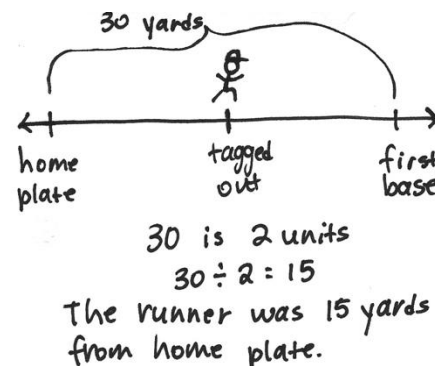 30 yards
home
plate
tagged
out
first
base
30 is 2 units
30 ÷ 2 = 15
The runner was 15 yards
from home plate.